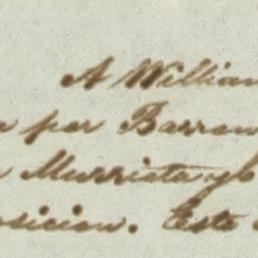 A William
por Barrow
Murrieta y
osicion. Este